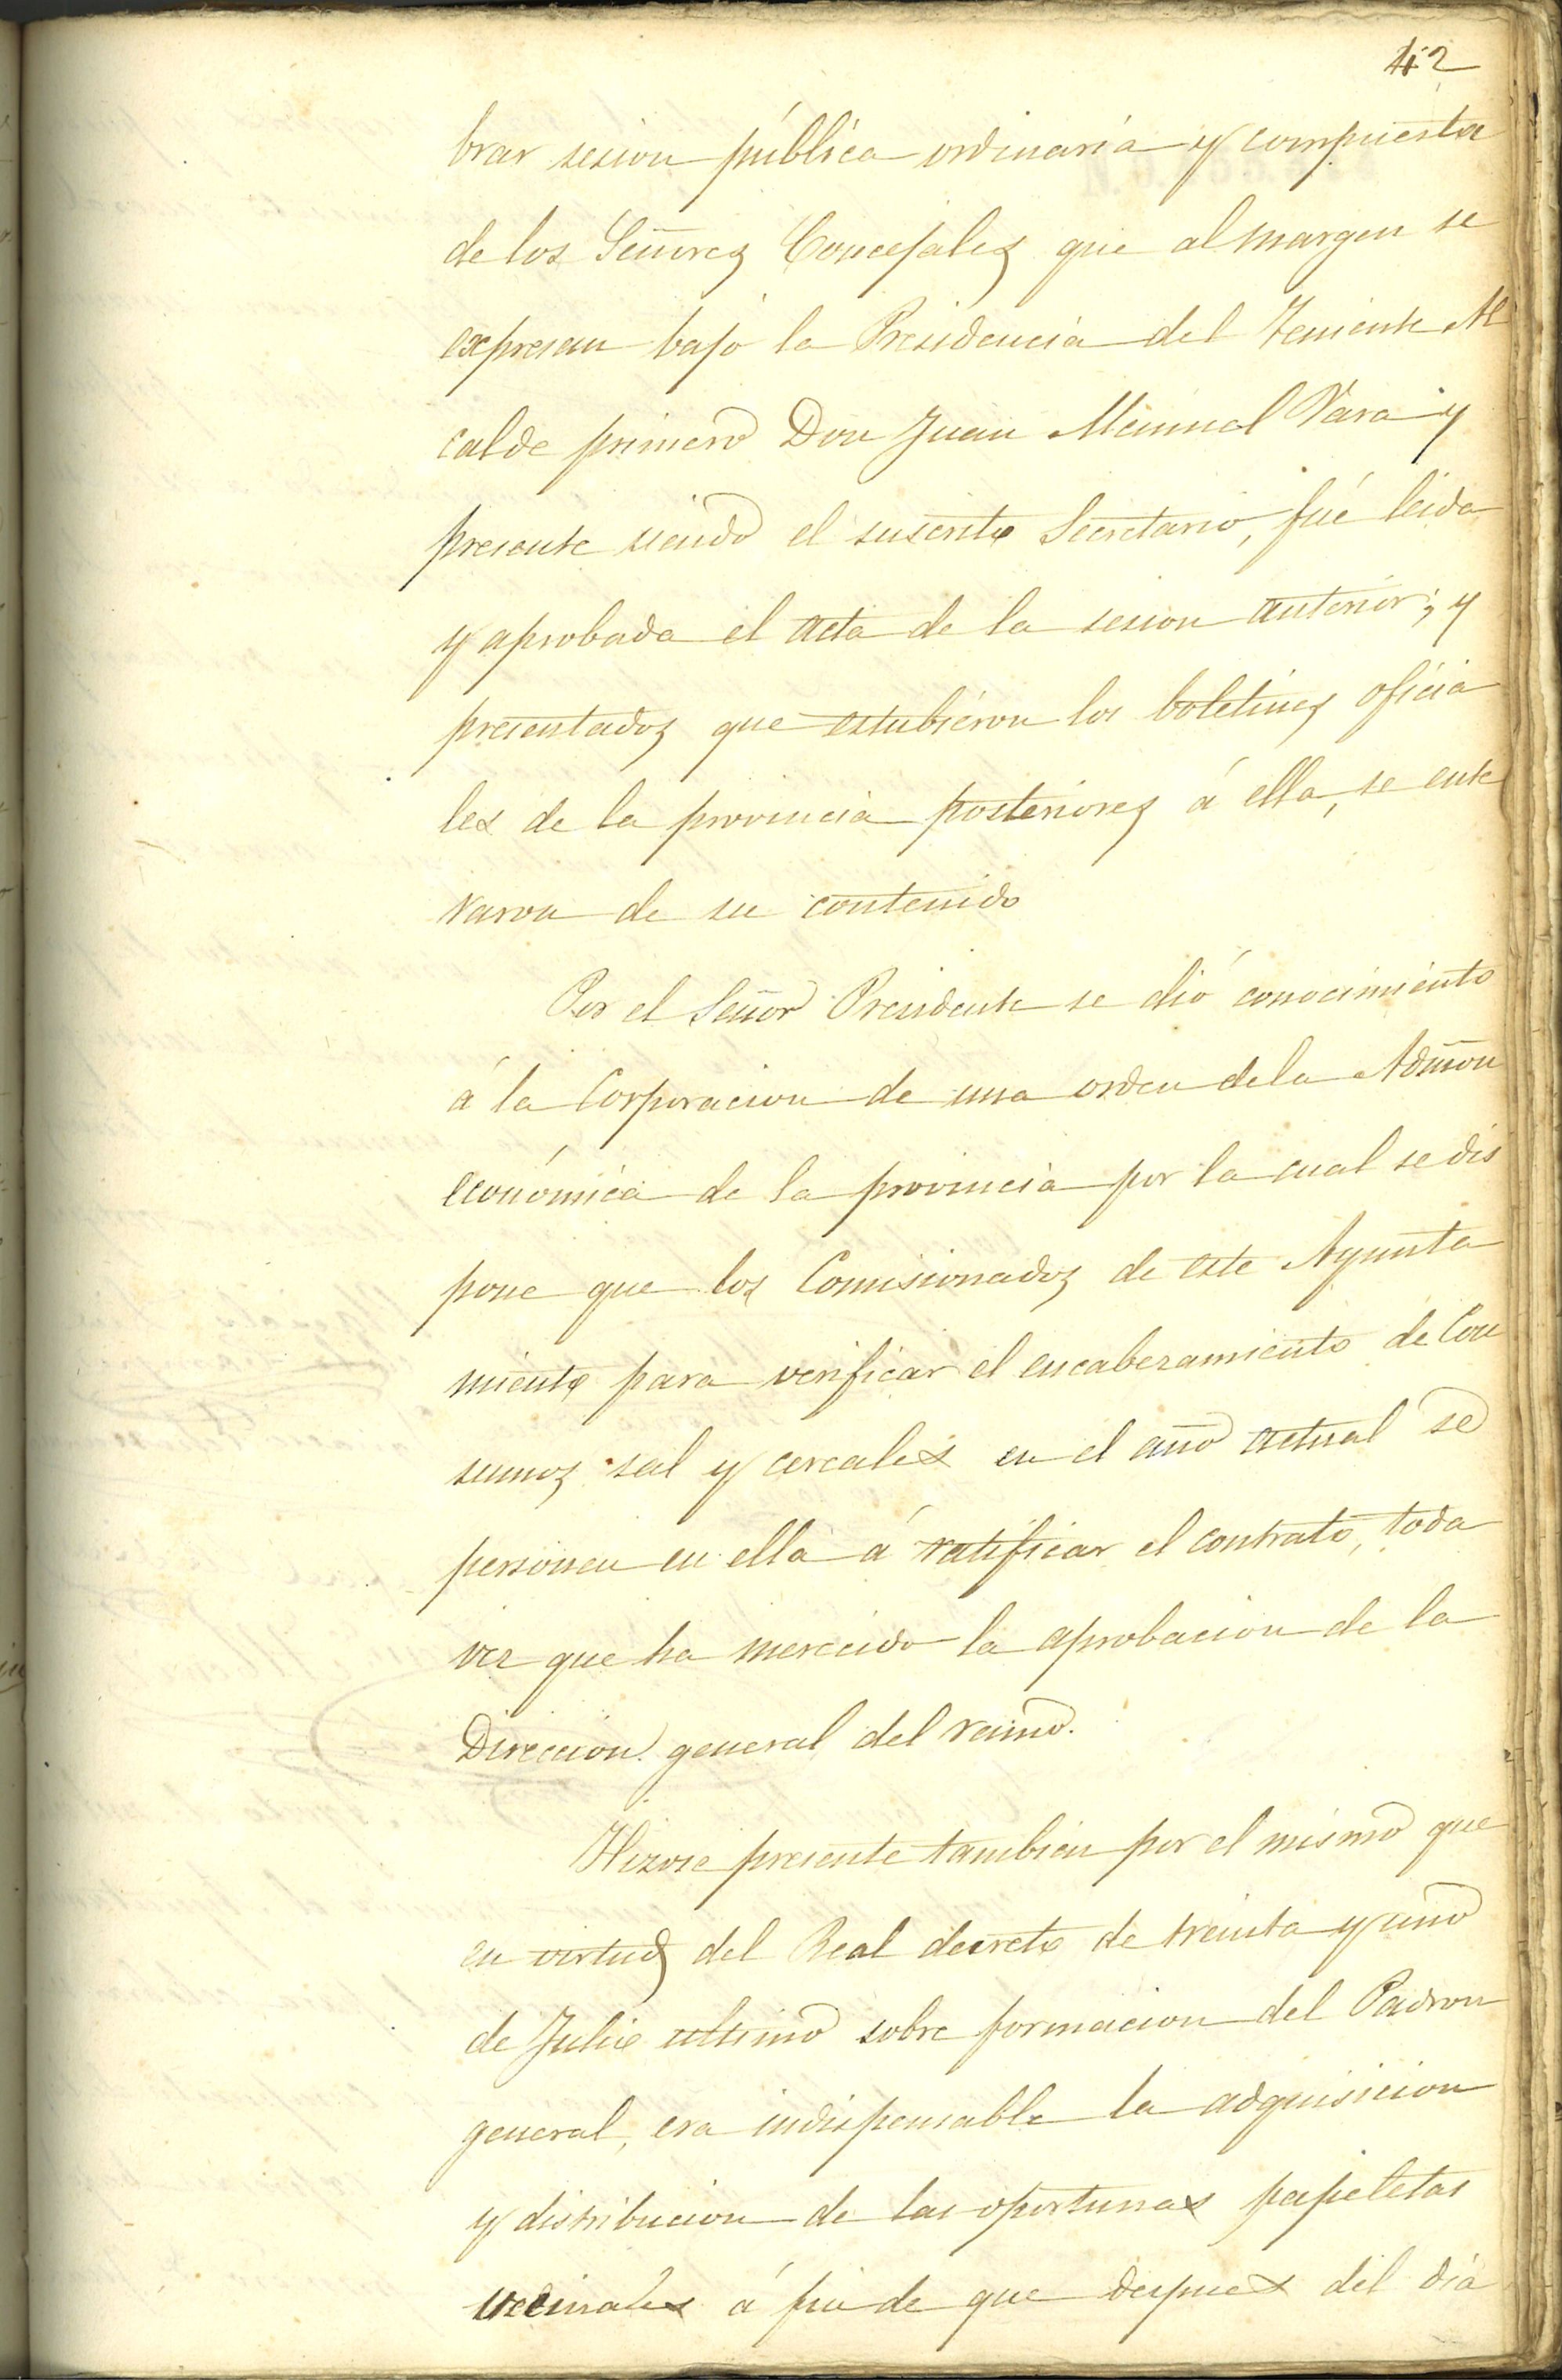 42
brar sesion pública ordinaria y compuesta
de los Señores Concejales que al margen se
expresan bajo la Presidencia del Teniente Al
calde primero Don Juan Manuel Vara y
presente siendo el suscrito Secretario, fué leida
y aprobada el acta de la sesion anterior; y
presentados que estubieron los boletines oficia
les de la provincia posteriores á ella, se ente
raron de su contenido
Por el Señor Presidente se dió conocimiento
á la Corporacion de una orden de la Admon
económica de la provincia por la cual se dis
pone que los Comisionados de este Ayunta
miento para verificar el encabezamiento de Con
sumos sal y cereales en el año actual se
personen en ella á ratificar el contrato, toda
vez que ha merecido la aprobacion de la
Direccion general del ramo.
Hizose presente tambien por el mismo que
en virtud del Real decreto de treinta y uno
de Julio ultimo sobre formacion del Padron
general, era indispensable la adquisicion
y distribucion de las oportunas papeletas
vecinales á fin de que despues del dia